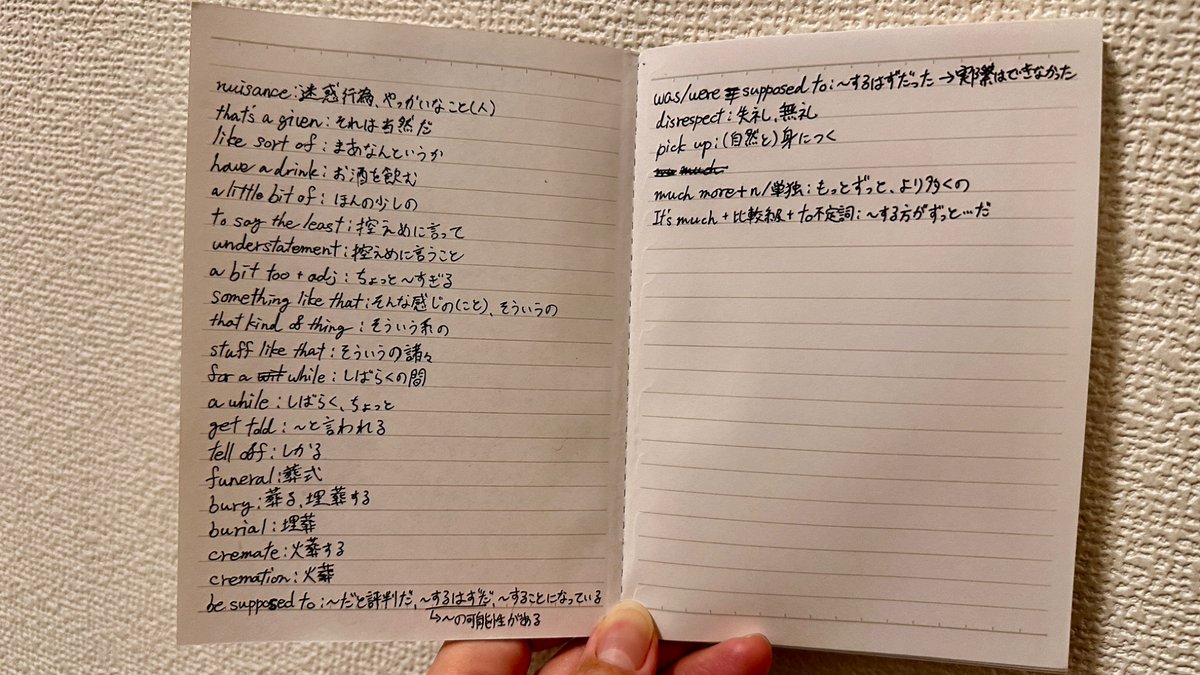 nuisance:迷惑行為、やっかいなこと(人)
that's a given:それは当然だ
like sort of:まあなんというか
have a drink:お酒を飲む
a little bit of:ほんの少しの
to say the least:控えめに言って
understatement:控えめに言うこと
a bit too + adj:ちょっと〜すぎる
something like that:そんな感じの(こと)、そういうの
that kind of thing:そういう系の
stuff like that:そういうの諸々
for a while:しばらくの間
a while:しばらく、ちょっと
get told:〜と言われる
tell off:しかる
funeral:葬式
bury:葬る、埋葬する
burial:埋葬
cremate:火葬する
cremation:火葬
be supposed to:〜だと評判だ、〜するはずだ、〜することになっている
↳〜の可能性がある
was/were supposed to:〜するはずだった→実際はできなかった
disrespect:失礼、無礼
pick up:(自然と)身につく
much
much more+n/単独:もっとずっと、より多くの
It's much+比較級+to不定詞:〜する方がずっと…だ